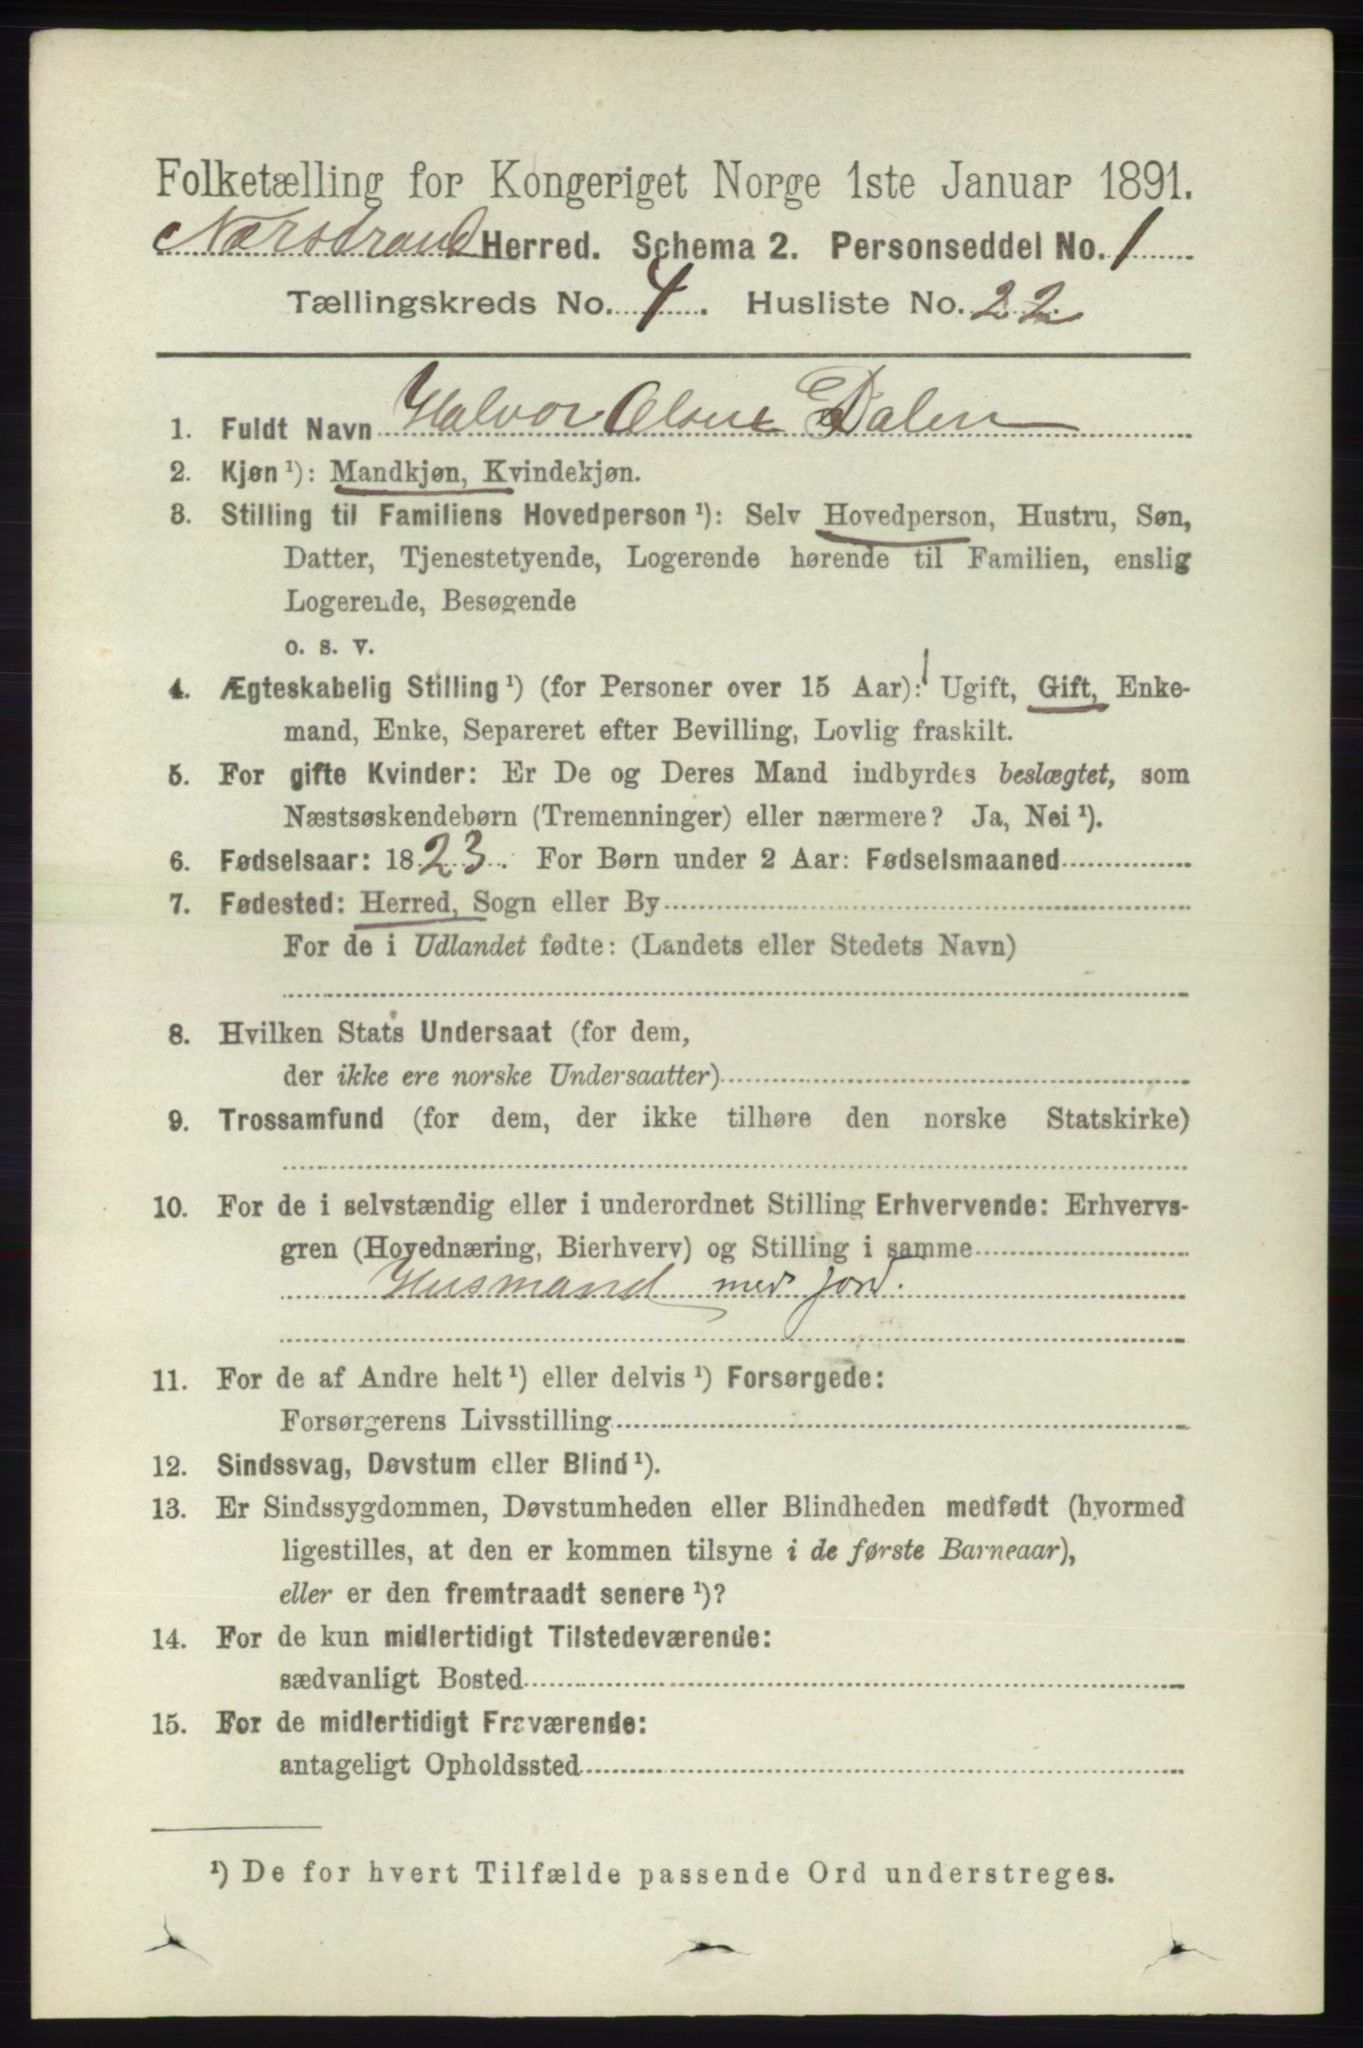 Folketælling for Kongeriget Norge 1ste Januar 1891.
Nærstrand Herred. Schema 2. Personseddel No. 1
Tællingskreds No. 4. Husliste No. 22
1. Fuldt Navn Halvor Olsen Dalen
2. Kjøn ¹): Mandkjøn, Kvindekjøn.
3. Stilling til Familiens Hovedperson ¹): Selv Hovedperson, Hustru, Søn,
Datter, Tjenestetyende, Logerende hørende til Familien, enslig
Logerende, Besøgende
o. s. v.
4. Ægteskabelig Stilling ¹) (for Personer over 15 Aar): Ugift, Gift, Enke-
mand, Enke, Separeret efter Bevilling, Lovlig fraskilt.
5. For gifte Kvinder: Er De og Deres Mand indbyrdes beslægtet, som
Næstsøskendebørn (Tremenninger) eller nærmere? Ja, Nei ¹).
6. Fødselsaar: 1823. For Børn under 2 Aar: Fødselsmaaned
7. Fødested: Herred, Sogn eller By
For de i Udlandet fødte: (Landets eller Stedets Navn)
8. Hvilken Stats Undersaat (for dem,
der ikke ere norske Undersaatter)
9. Trossamfund (for dem, der ikke tilhøre den norske Statskirke)
10. For de i selvstændig eller i underordnet Stilling Erhvervende: Erhvervs-
gren (Hovednæring, Bierhverv) og Stilling i samme
Husmand med jord.
11. For de af Andre helt ¹) eller delvis ¹) Forsørgede:
Forsørgerens Livsstilling
12. Sindssvag, Døvstum eller Blind ¹).
13. Er Sindssygdommen, Døvstumheden eller Blindheden medfødt (hvormed
ligestilles, at den er kommen tilsyne i de første Barneaar),
eller er den fremtraadt senere ¹)?
14. For de kun midlertidigt Tilstedeværende:
sædvanligt Bosted
15. For de midlertidigt Fraværende:
antageligt Opholdssted
¹) De for hvert Tilfælde passende Ord understreges.